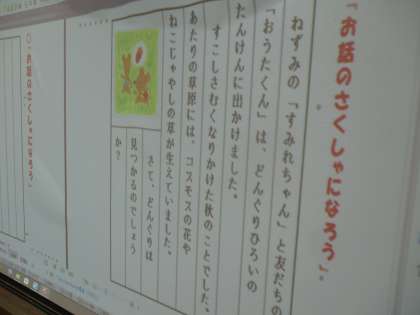 「お話のさくしゃになろう」。
ねずみの「すみれちゃん」と友だちの
「おうたくん」は、どんぐりひろいの
たんけんに出かけました。
すこしさむくなりかけた秋のことでした。
あたりの草原には、コスモスの花や
ねこじゃらしの草が生えていました。
さて、どんぐりは
見つかるのでしょう
か?
○「お話のさくしゃになろう」